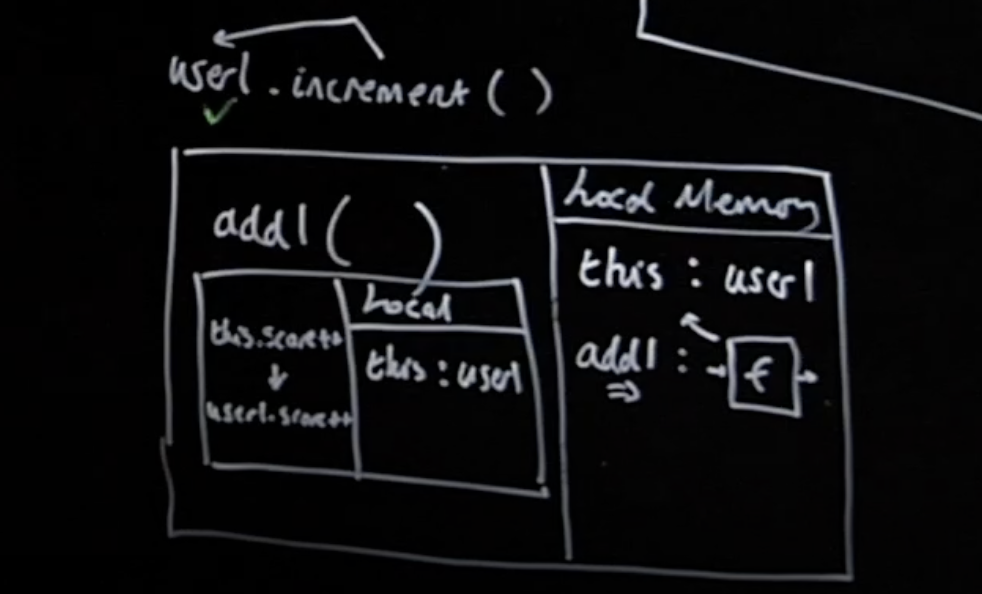 user1.increment()
add1()
Local
this.score++
↓
user1.score++
this : user1
Local Memory
this : user1
add1 : → f →
⇒